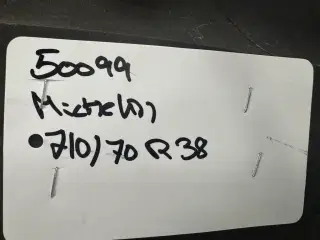 50099
Michelin
• 710/70 R 38